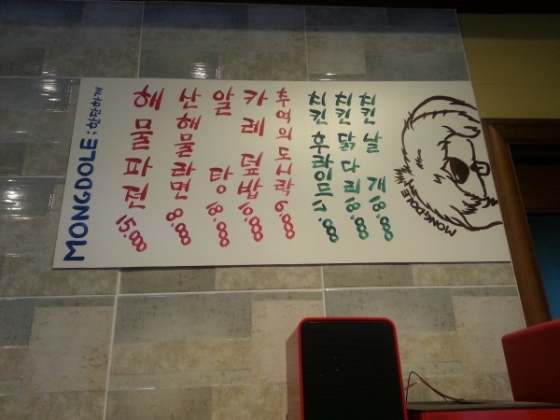 MONGDOLE: 한잔하개
해물파전 15.000
산해물라면 8.000
알탕 18.000
카레덮밥 6.000
추억의도시락 6.000
치킨 후라이드 17.000
치킨 닭다리 18.000
치킨 날개 18.000
MONGDOLE